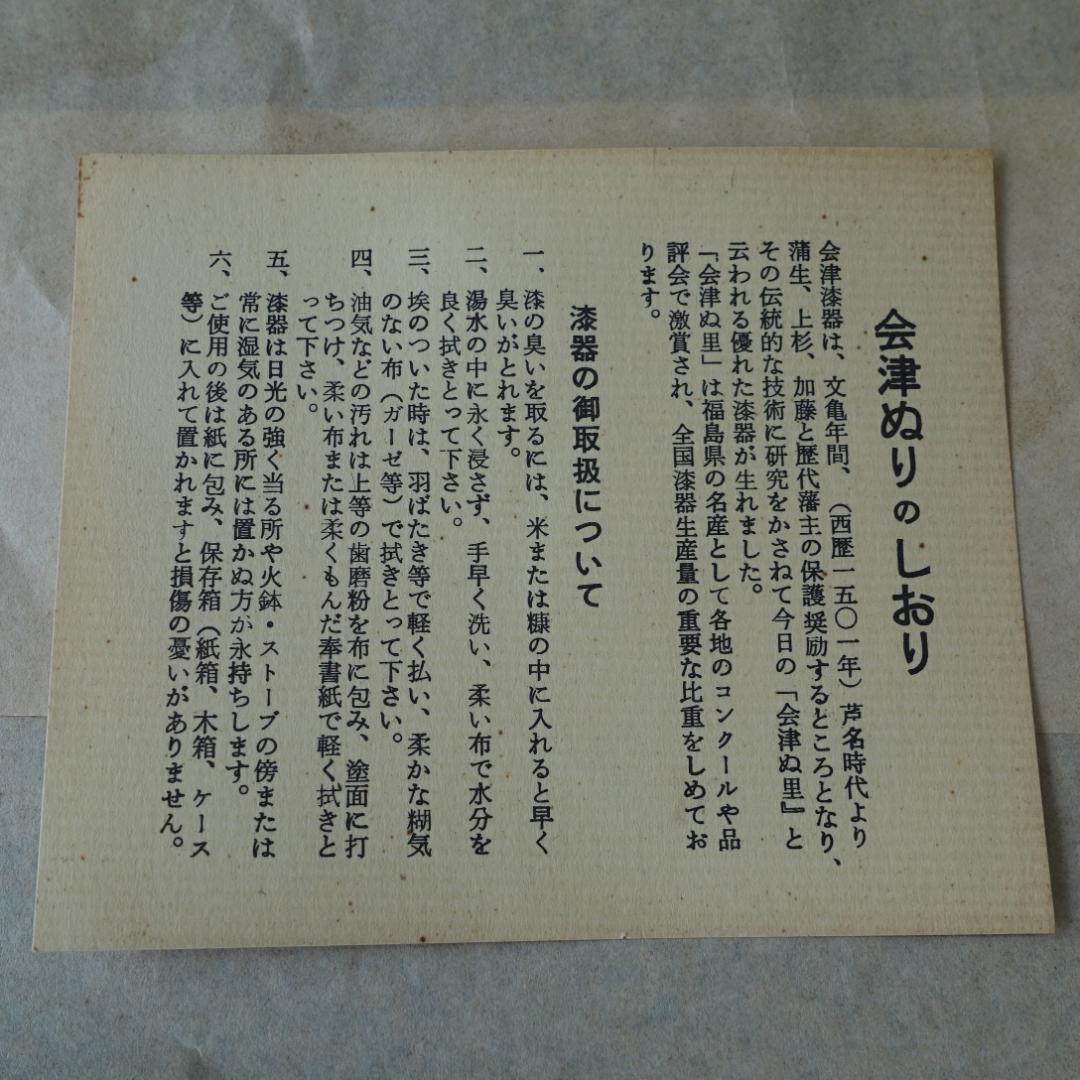 会津ぬりのしおり
会津漆器は、文亀年間、（西歴一五〇一年）芦名時代より
蒲生、上杉、加藤と歴代藩主の保護奨励するところとなり、
その伝統的な技術に研究をかさねて今日の「会津ぬ里』と
云われる優れた漆器が生れました。
「会津ぬ里」は福島県の名産として各地のコンクールや品
評会で激賞され、全国漆器生産量の重要な比重をしめてお
ります。
漆器の御取扱について
一、漆の臭いを取るには、米または糠の中に入れると早く
臭いがとれます。
二、湯水の中に永く浸さず、手早く洗い、柔い布で水分を
良く拭きとって下さい。
三、埃のついた時は、羽ばたき等で軽く払い、柔かな糊気
のない布（ガーゼ等）で拭きとって下さい。
四、油気などの汚れは上等の歯磨粉を布に包み、塗面に打
ちつけ、柔い布または柔くもんだ奉書紙で軽く拭きと
って下さい。
五、漆器は日光の強く当る所や火鉢・ストーブの傍または
常に湿気のある所には置かぬ方が永持ちします。
六、ご使用の後は紙に包み、保存箱（紙箱、木箱、ケース
等）に入れて置かれますと損傷の憂いがありません。